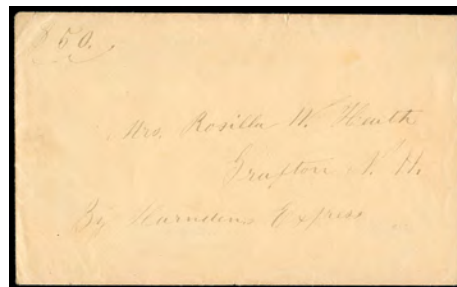 $50.
Mrs. Rosilla W.
Grafton N. H.
By Harndens Express